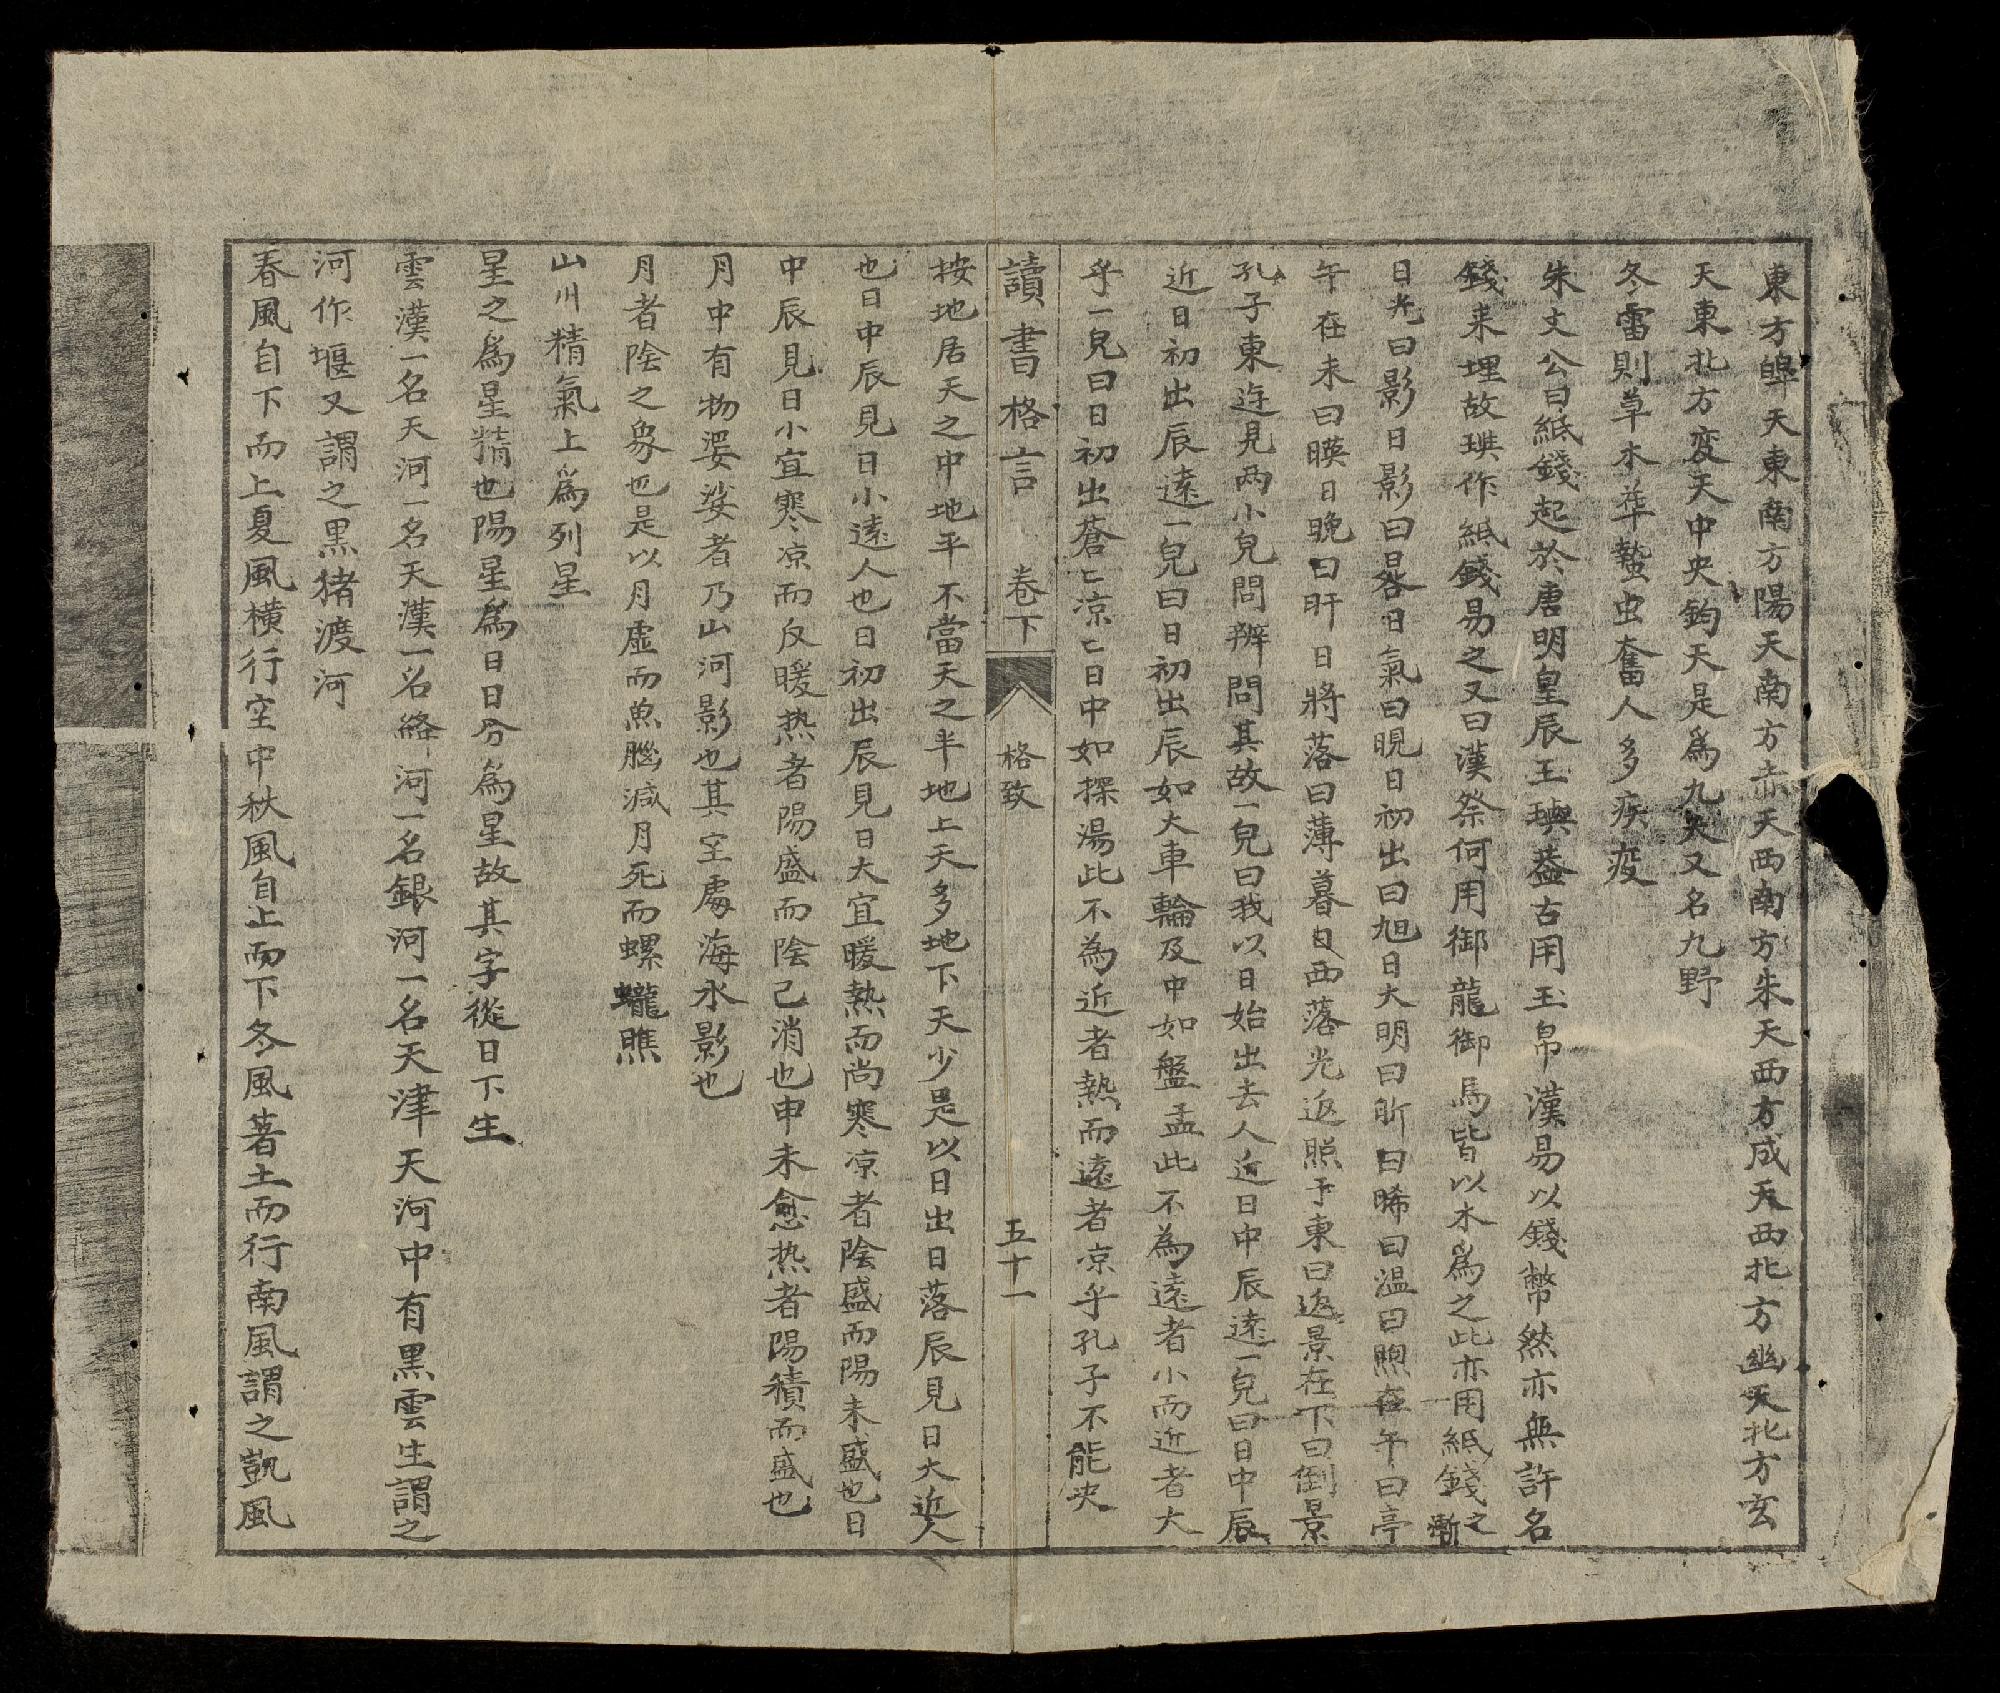 東方皥天東南方陽天南方赤天西南方朱天西方成天西北方幽天北方玄
天東北方変天中央鈞天是爲九天又名九野
冬雷則草木萃蟄虫奮人多疾疫
朱文公曰紙錢起於唐明皇辰王璵蓋古用玉帛漢易以錢幣然亦無許名
錢来埋故璵作紙錢易之又曰漢祭何用御龍御馬皆以木爲之此亦用紙錢之漸
日光曰影日影曰晷日氣曰晛日初出曰旭日大明曰昕曰晞曰温曰煦在午曰亭
午在未曰暎日晚曰旰日將落曰薄暮日西落光返照于東曰返景在下曰倒景
孔子東逰見两小兒問辨問其故一兒曰我以日始出去人近日中辰遠一兒曰日中辰
近日初出辰遠一兒曰日初出辰如大車輪及中如盤盂此不為遠者小而近者大
乎一兒曰日初出蒼〻凉〻日中如探湯此不為近者熱而遠者凉乎孔子不能决
讀書格言 卷下 格致 五十一
按地居天之中地平不當天之半地上天多地下天少是以日出日落辰見日大近人
也日中辰見日小遠人也日初出辰見日大宜暖熱而尚寒凉者陰盛而陽未盛也日
中辰見日小宜寒凉而反暖热者陽盛而陰己消也申未愈热者陽積而盛也
月中有物婆娑者乃山河影也其空處海水影也
月者陰之象也是以月虚而魚腦减月死而螺蠬膲
山川精氣上爲列星
星之爲星精也陽星爲日日分爲星故其字從日下生
雲漢一名天河一名天漢一名絳河一名銀河一名天津天河中有黑雲生謂之
河作堰又謂之黒猪渡河
春風自下而上夏風橫行空中秋風自上而下冬風著土而行南風謂之凱風